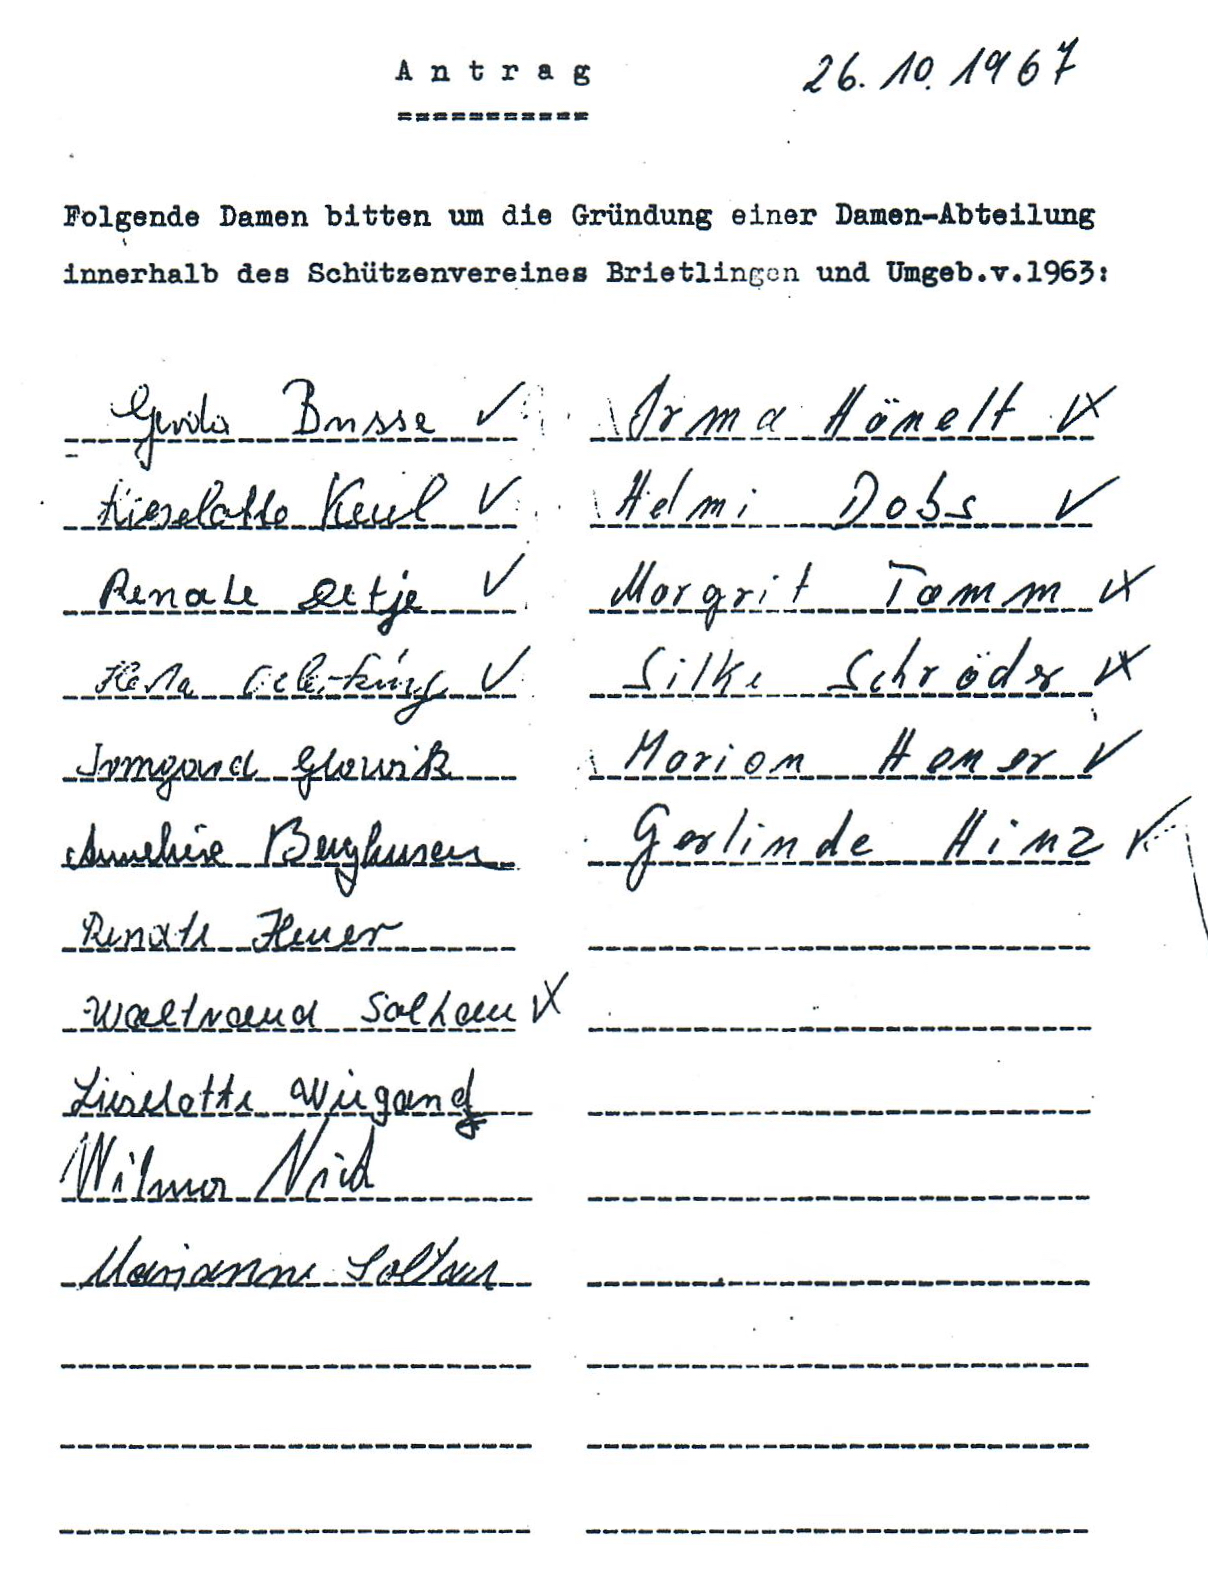 Antrag 26.10.1967
Folgende Damen bitten um die Gründung einer Damen-Abteilung
innerhalb des Schützenvereines Brietlingen und Umgeb.v.1963:
Gerda Busse ✓
Irma Hönelt
Lieselotte Keul ✓
Helmi Dobs ✓
Renate Oetje ✓
Margrit Tamm
✓
Silke Schröder
Irmgard Glowik
Marion Hener ✓
Anneliese Berghusen
Gerlinde Hinz ✓
Renate Heuer
Waltraud Soltau
Lieselotte Wiegand
Wilma
Marianne Soltau